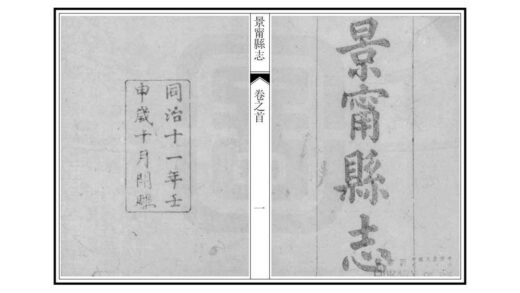 景甯縣志
景甯縣志
卷之首
一
同治十一年壬
申歲十月開雕